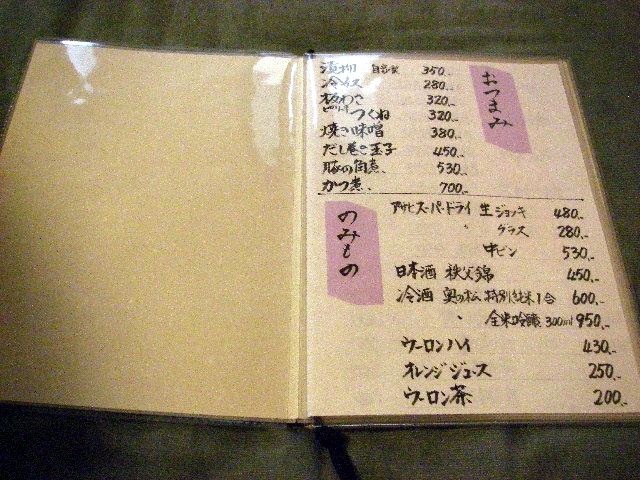 おつまみ
漬物 自家製 350.-
冷やっこ 280.-
板わさ 320.-
つくね 320.-
焼き味噌 380.-
だし巻き玉子 450.-
豚の角煮 530.-
かつ煮 700.-
のみもの
アサヒスーパードライ 生ジョッキ 480.-
グラス 280.-
中ビン 530.-
日本酒 秩父錦 450.-
冷酒 奥の松 特別純米1合 600.-
全米吟醸 300ml 950.-
ウーロンハイ 430.-
オレンジジュース 250.-
ウーロン茶 200.-